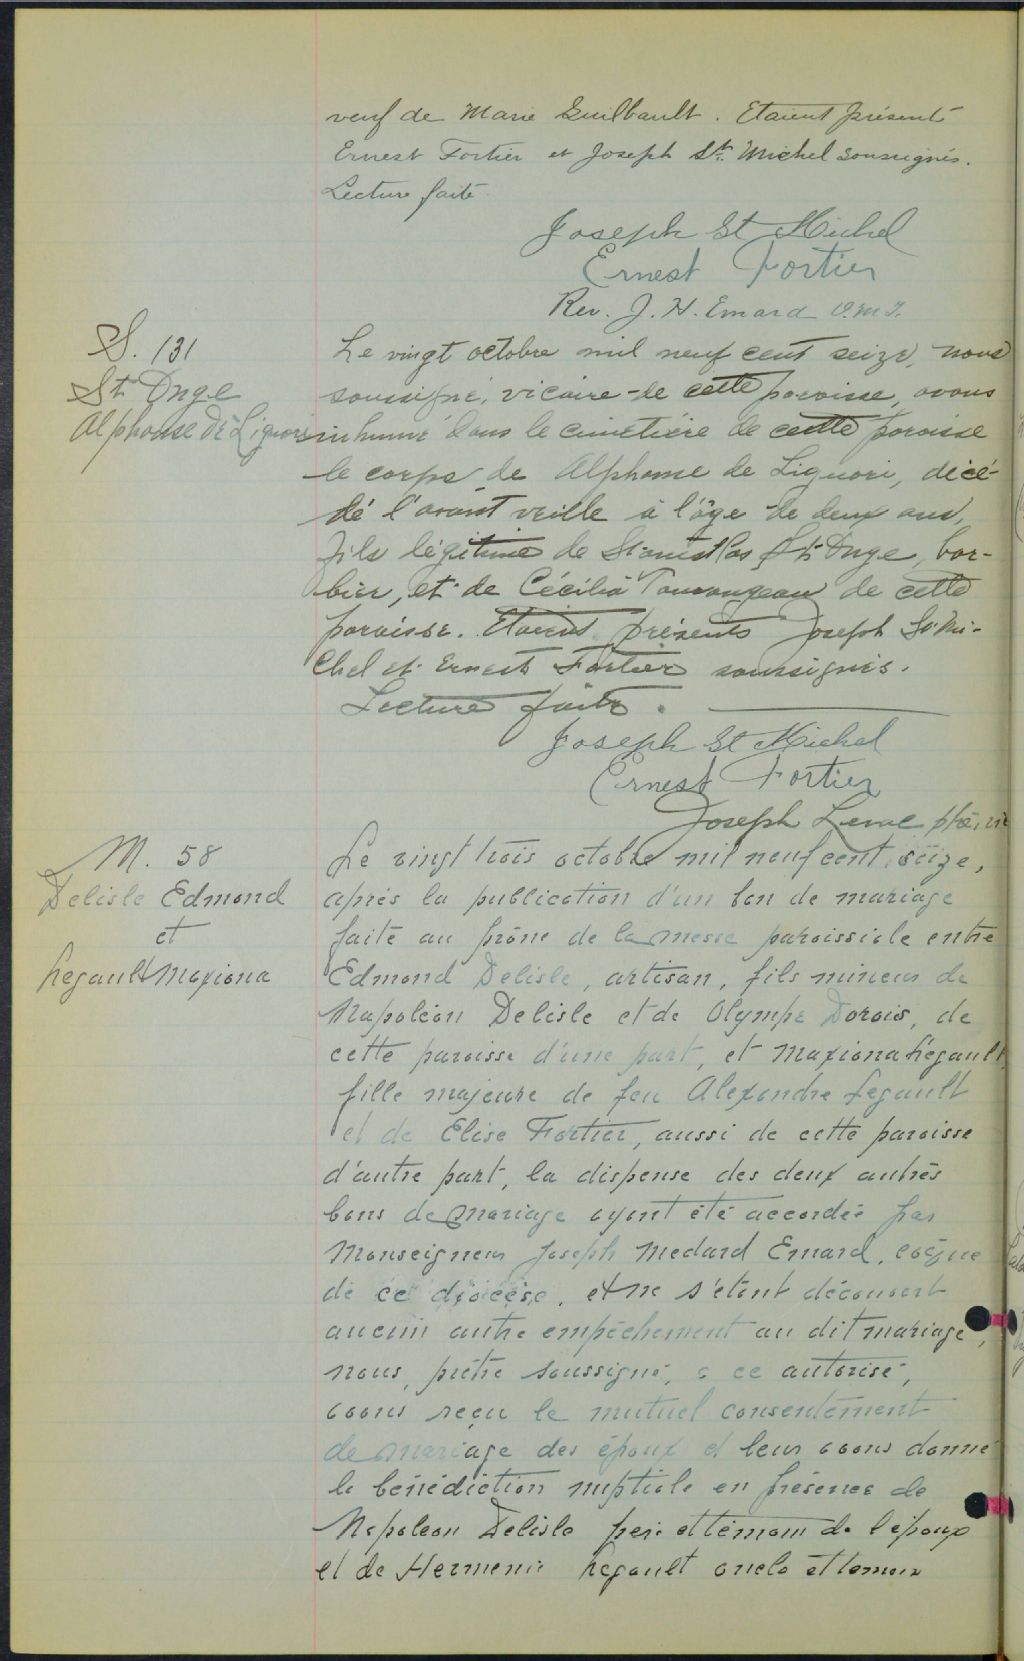 veuf de Marie Guilbault. Etaient présents
Ernest Fortier et Joseph St. Michel soussignés.
Lecture faite.
Joseph St Michel
Ernest Fortier
Rev. J. H. Emard O.M.I.
S. 131
St Onge
Alphonse de Liguori
Le vingt octobre mil neuf cent seize, nous
soussigné, vicaire de cette paroisse, avons
inhumé dans le cimetière de cette paroisse
le corps de Alphonse de Liguori, décé-
dé l'avant veille à l'âge de deux ans,
fils légitime de Stanislas St Onge, bar-
bier, et de Cécilia Tourangeau de cette
paroisse. Etaient présents Joseph St Mi-
chel et Ernest Fortier soussignés.
Lecture faite.
Joseph St Michel
Ernest Fortier
Joseph Leduc ptre, vic
M. 58
Delisle Edmond
et
Legault Maxiona
Le vingt trois octobre mil neuf cent seize,
après la publication d'un ban de mariage
faite au prône de la messe paroissiale entre
Edmond Delisle, artisan, fils mineur de
Napoléon Delisle et de Olympe Darais, de
cette paroisse d'une part, et Maxiona Légault,
fille majeure de feu Alexandre Legault
et de Elise Fortier, aussi de cette paroisse
d'autre part, la dispense des deux autres
bans de mariage ayant été accordée par
Monseigneur Joseph Medard Emard, évêque
de ce diocèse, et ne s'étant découvert
aucun autre empêchement au dit mariage,
nous, prêtre soussigné, à ce autorisé,
avons reçu le mutuel consentement
de mariage des époux et leur avons donné
la bénédiction nuptiale en présence de
Napoleon Delisle père et témoin de l'époux
et de Hermenie Legault oncle et temoin